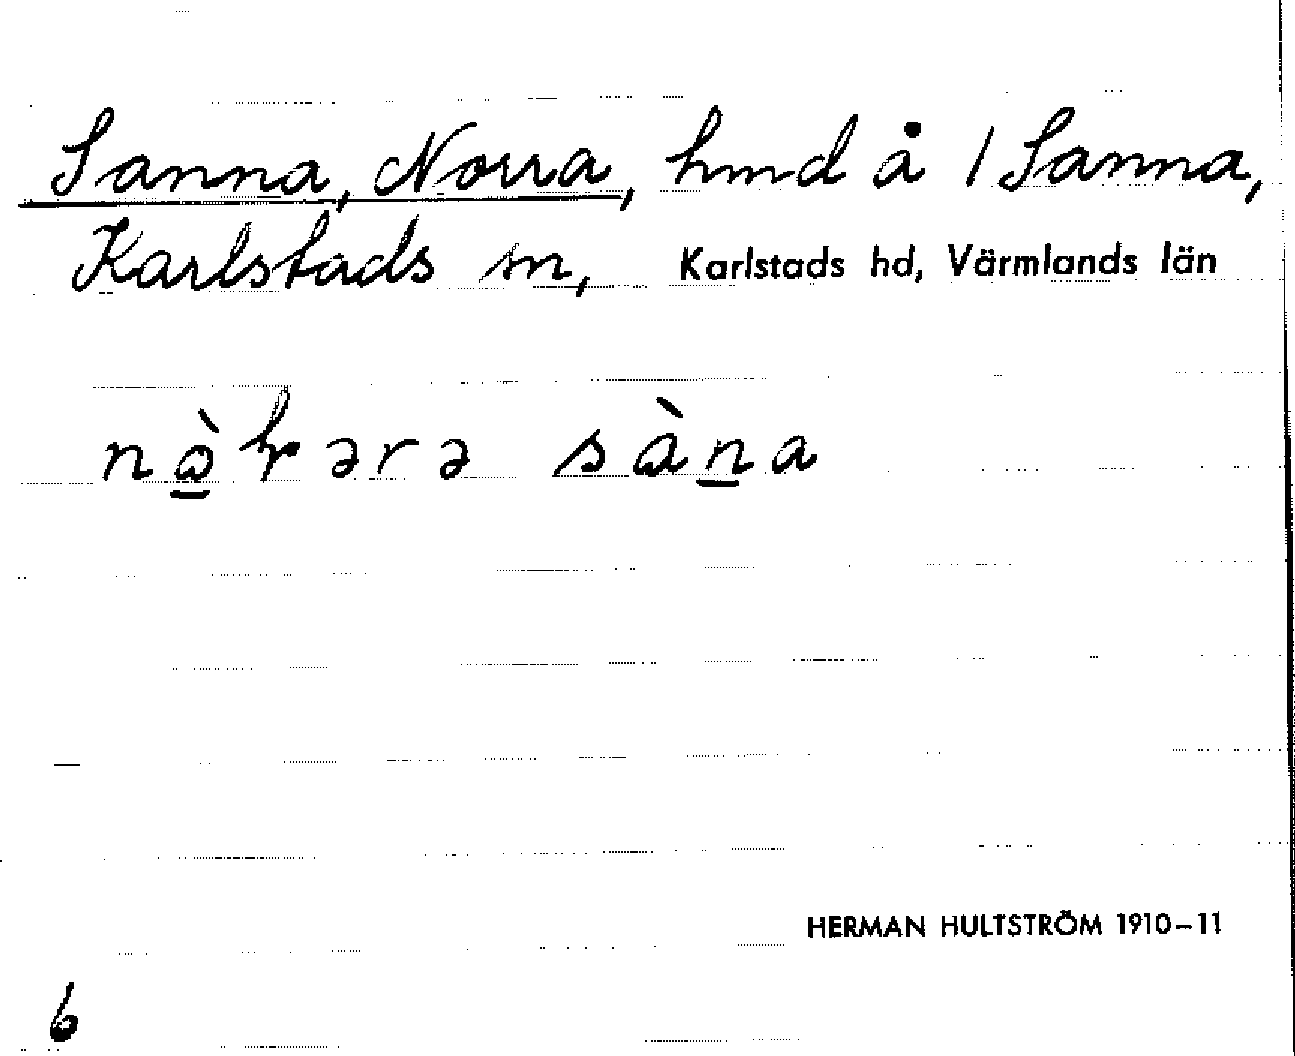 Sanna, Norra, hmd å 1 Sanna,
Karlstads sn, Karlstads hd, Värmlands län
sàna
HERMAN HULTSTRÖM 1910–11
6